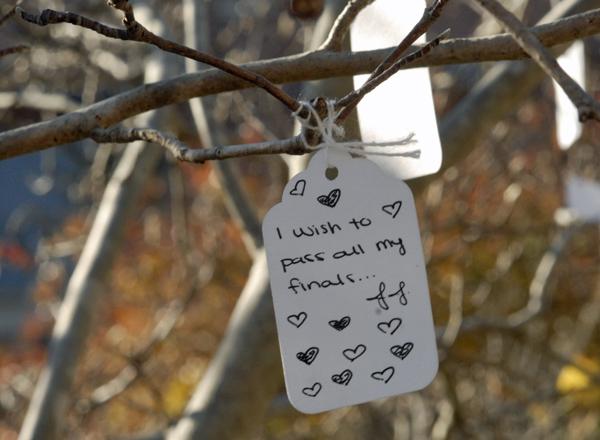 I wish to
pass all my
finals...